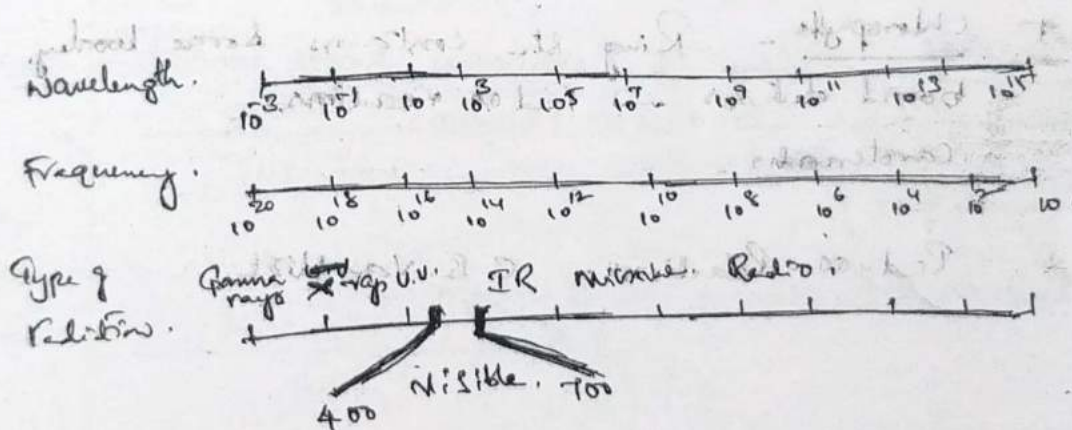 Wavelength.
10^-3 10^-1 10 10^3 10^5 10^7 10^9 10^11 10^13 10^15
Frequency.
10^20 10^18 10^16 10^14 10^12 10^10 10^8 10^6 10^4 10^2 10
Type of Gamma X-ray U.V. IR Radio.
rays
radiation.
Visible.
400 700